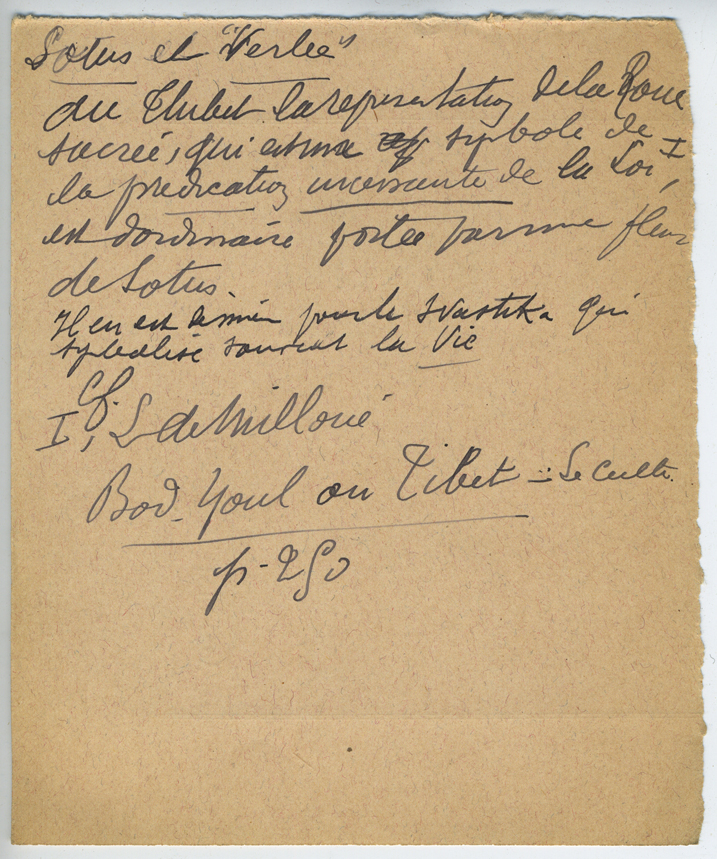 Lotus et "Verbe"
au Thibet la représentation de la Roue
sacrée, qui est une symbole de
la prédication incessante de la Loi I,
est d'ordinaire portée par une fleur
de Lotus.
Il en est de même pour le Svastika qui
symbolise souvent la Vie
I, Cf. L de Milloué
Bod-Youl ou Tibet - : Le Culte.
p-250